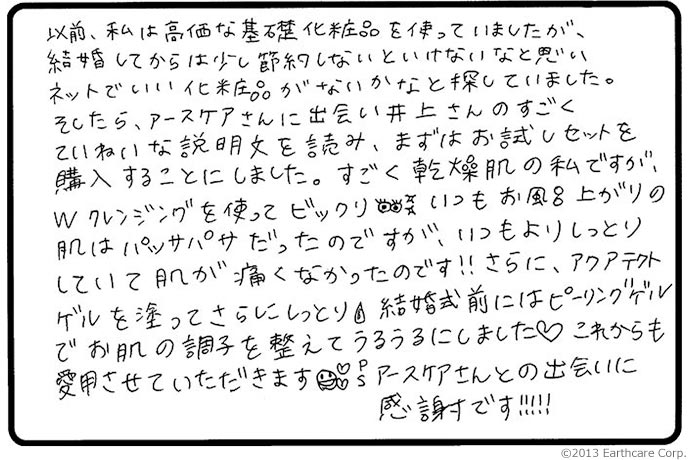 以前、私は高価な基礎化粧品を使っていましたが、
結婚してからは少し節約しないといけないなと思い
ネットでいい化粧品がないかなと探していました。
そしたら、アースケアさんに出会い井上さんのすごく
ていねいな説明文を読み、まずはお試しセットを
購入することにしました。すごく乾燥肌の私ですが、
Wクレンジングを使ってビックリ いつもお風呂上がりの
肌はパッサパサだったのですが、いつもよりしっとり
していて肌が痛くなかったのです!! さらに、アクアテクト
ゲルを塗ってさらにしっとり 結婚式前にはピーリングゲル
でお肌の調子を整えてうるうるにしました♡ これからも
愛用させていただきます PS アースケアさんとの出会いに
感謝です!!!!!
©2013 Earthcare Corp.